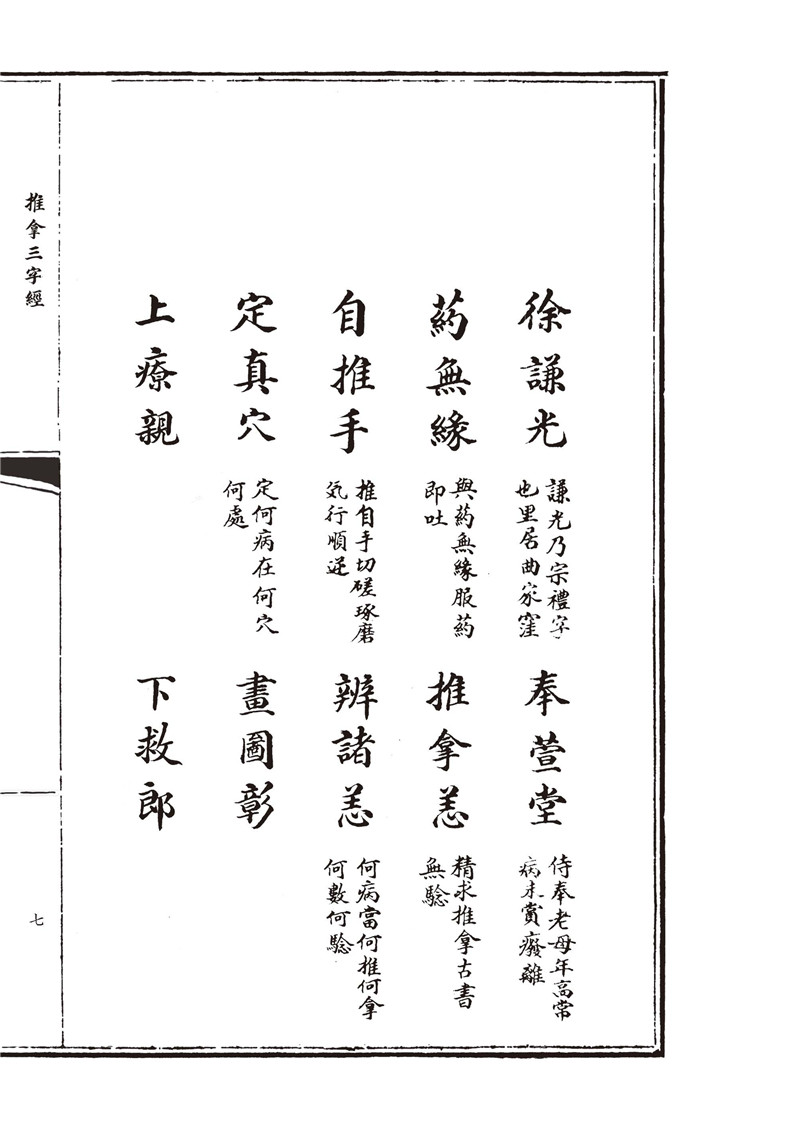 徐謙光
謙光乃宗禮字
也里居曲家窪
奉萱堂
侍奉老母年高常
病未賞癈離
葯無緣
與葯無緣服葯
即吐
推拿恙
精求推拿古書
無騐
自推手
推自手切磋琢磨
気行順逆
辨諸恙
何病當何推何拿
何數何騐
定真穴
定何病在何穴
何處
畫圖彰
上療親
下救郎
推拿三字經
七